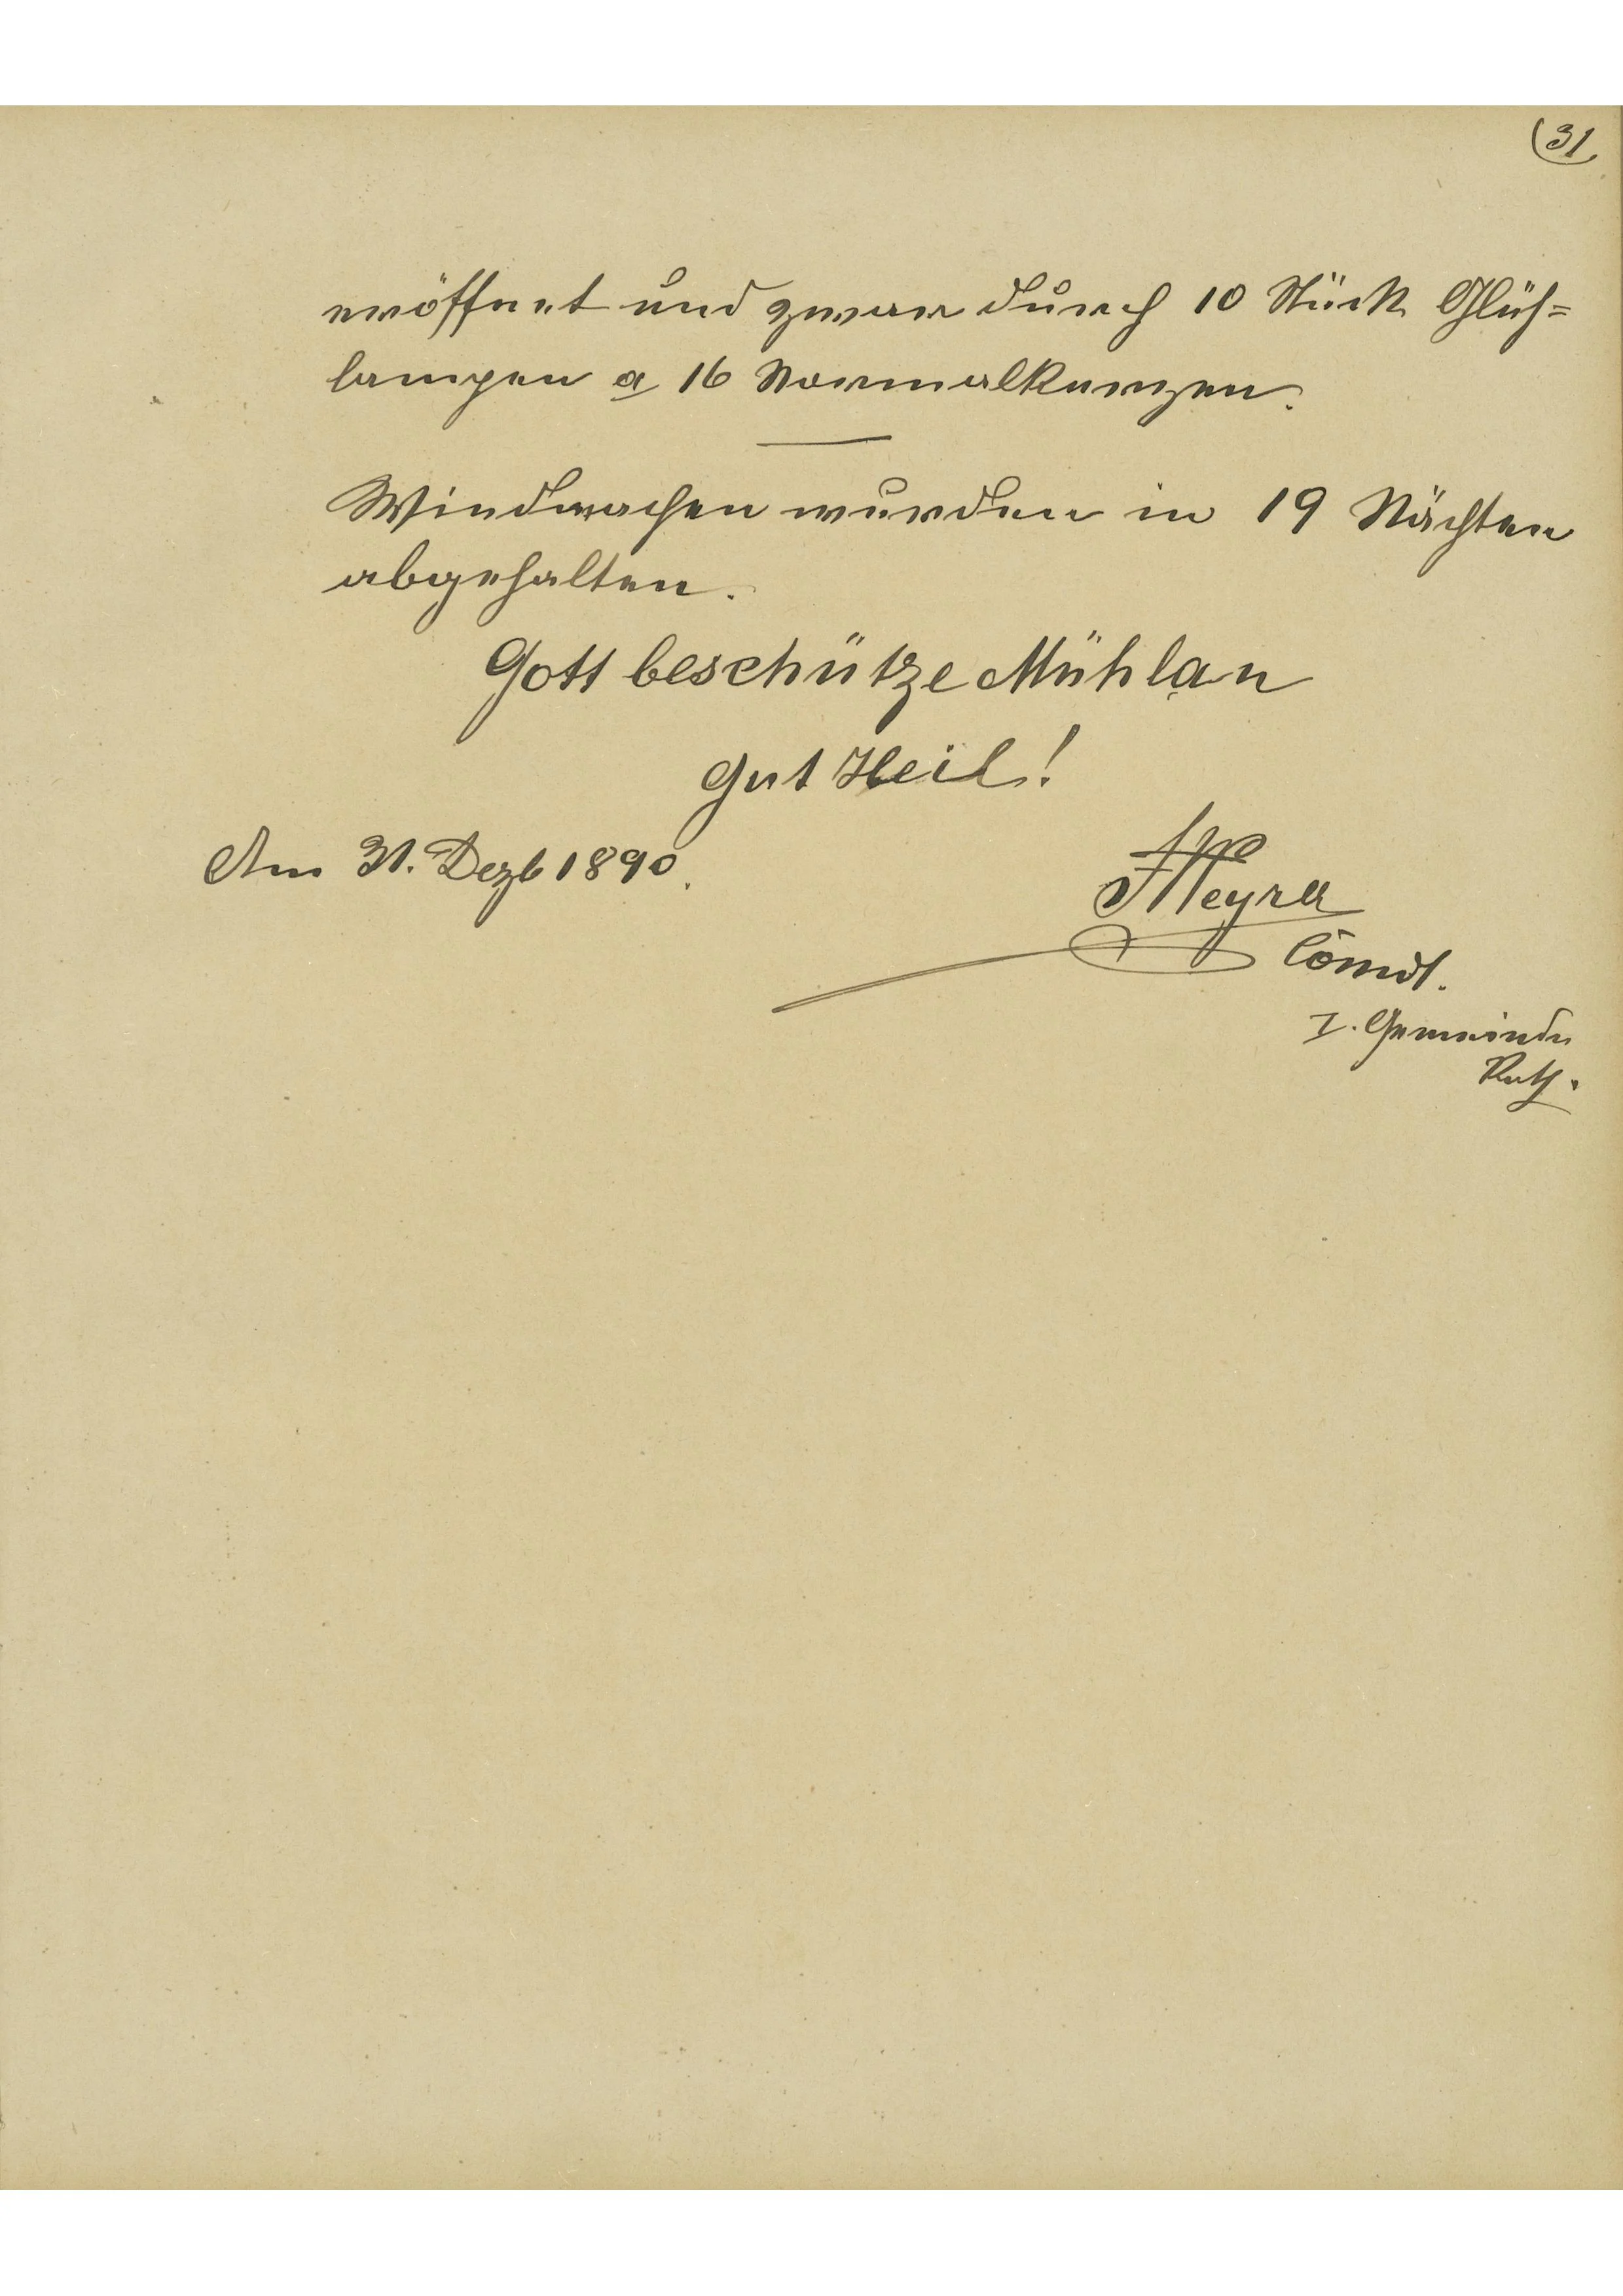 (31
eröffnet und zwar durch 10 Stück Glüh=
lampen a 16 Normalkerzen.
Windwachen wurden in 19 Nächten
abgehalten.
Gott beschütze Mühlau
Gut Heil!
Am 31. Dezb 1890.
Com̄dt.
I. Gemeinde
Rath.